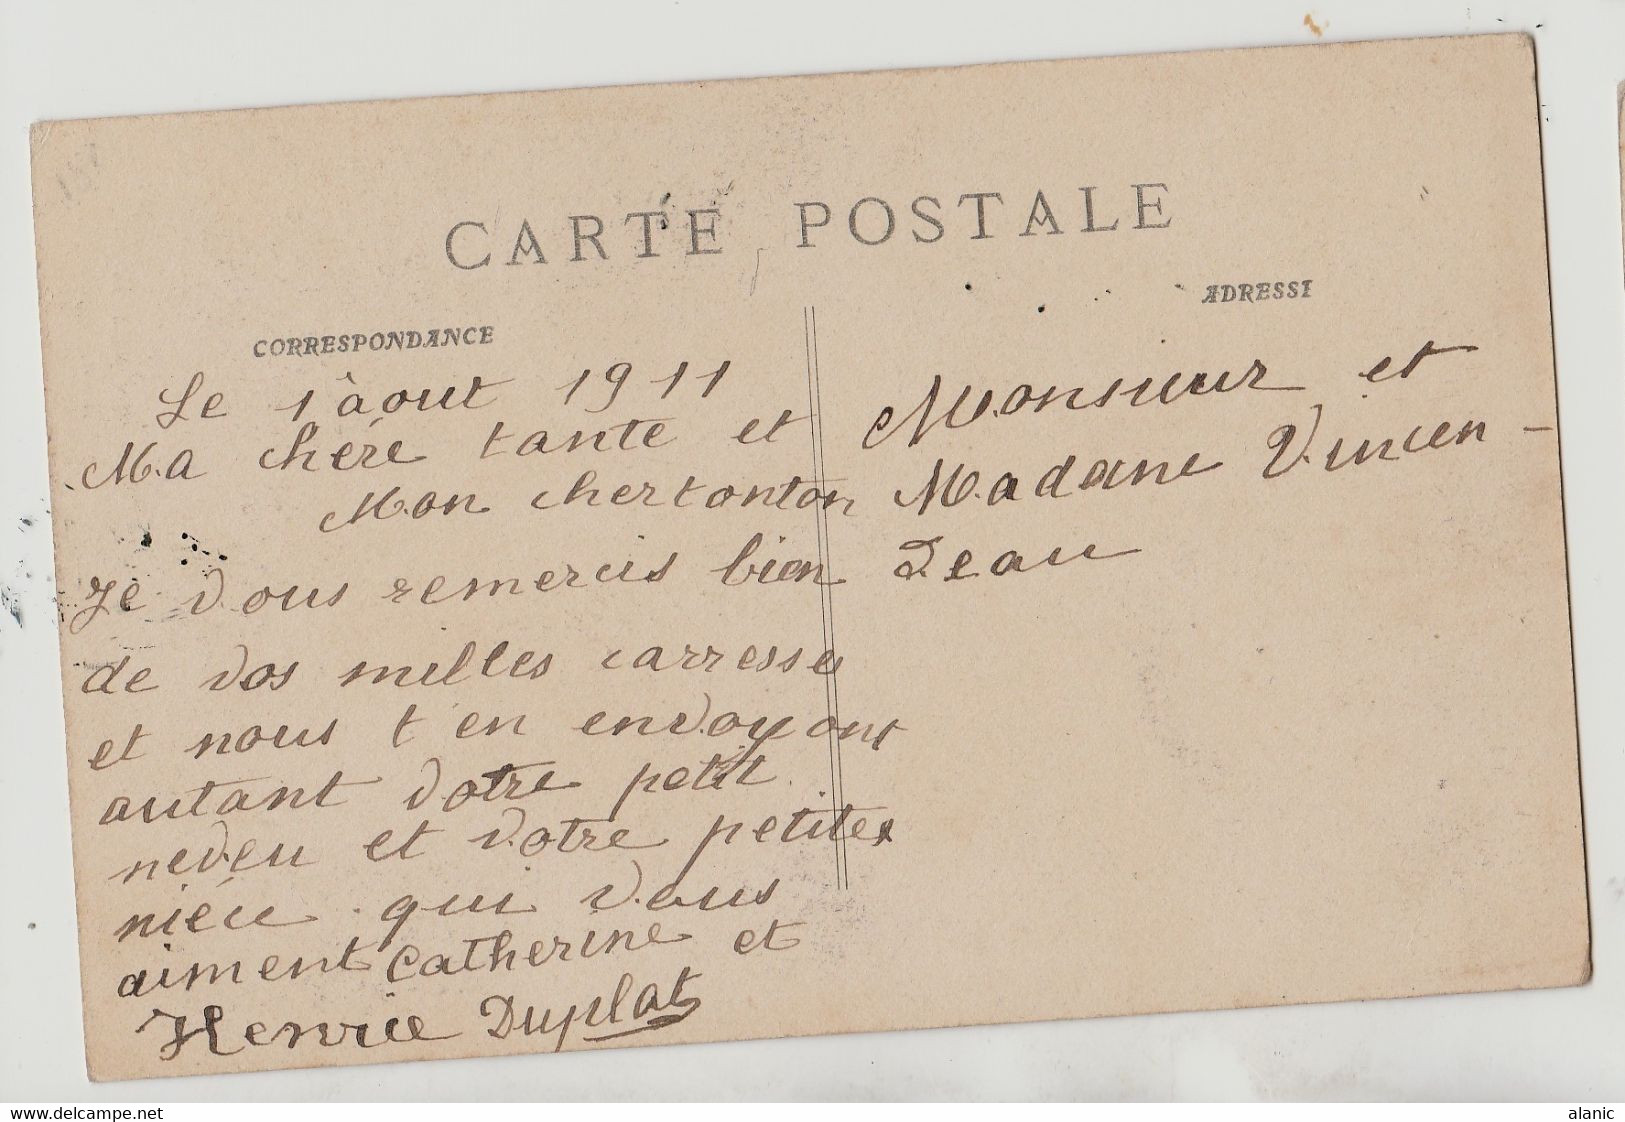 CARTE POSTALE
CORRESPONDANCE
Le 1 août 1911
Ma chére tante et
Mon cher tonton
Je vous remercis bien
de vos milles carresses
et nous t'en envoyont
autant votre petit
neveu et votre petites
niéce qui vous
aiment Catherine et
Henrie Duplat
ADRESSE
Monsieur et
Madame Vincen-
deau
www.delcampe.net
alanic